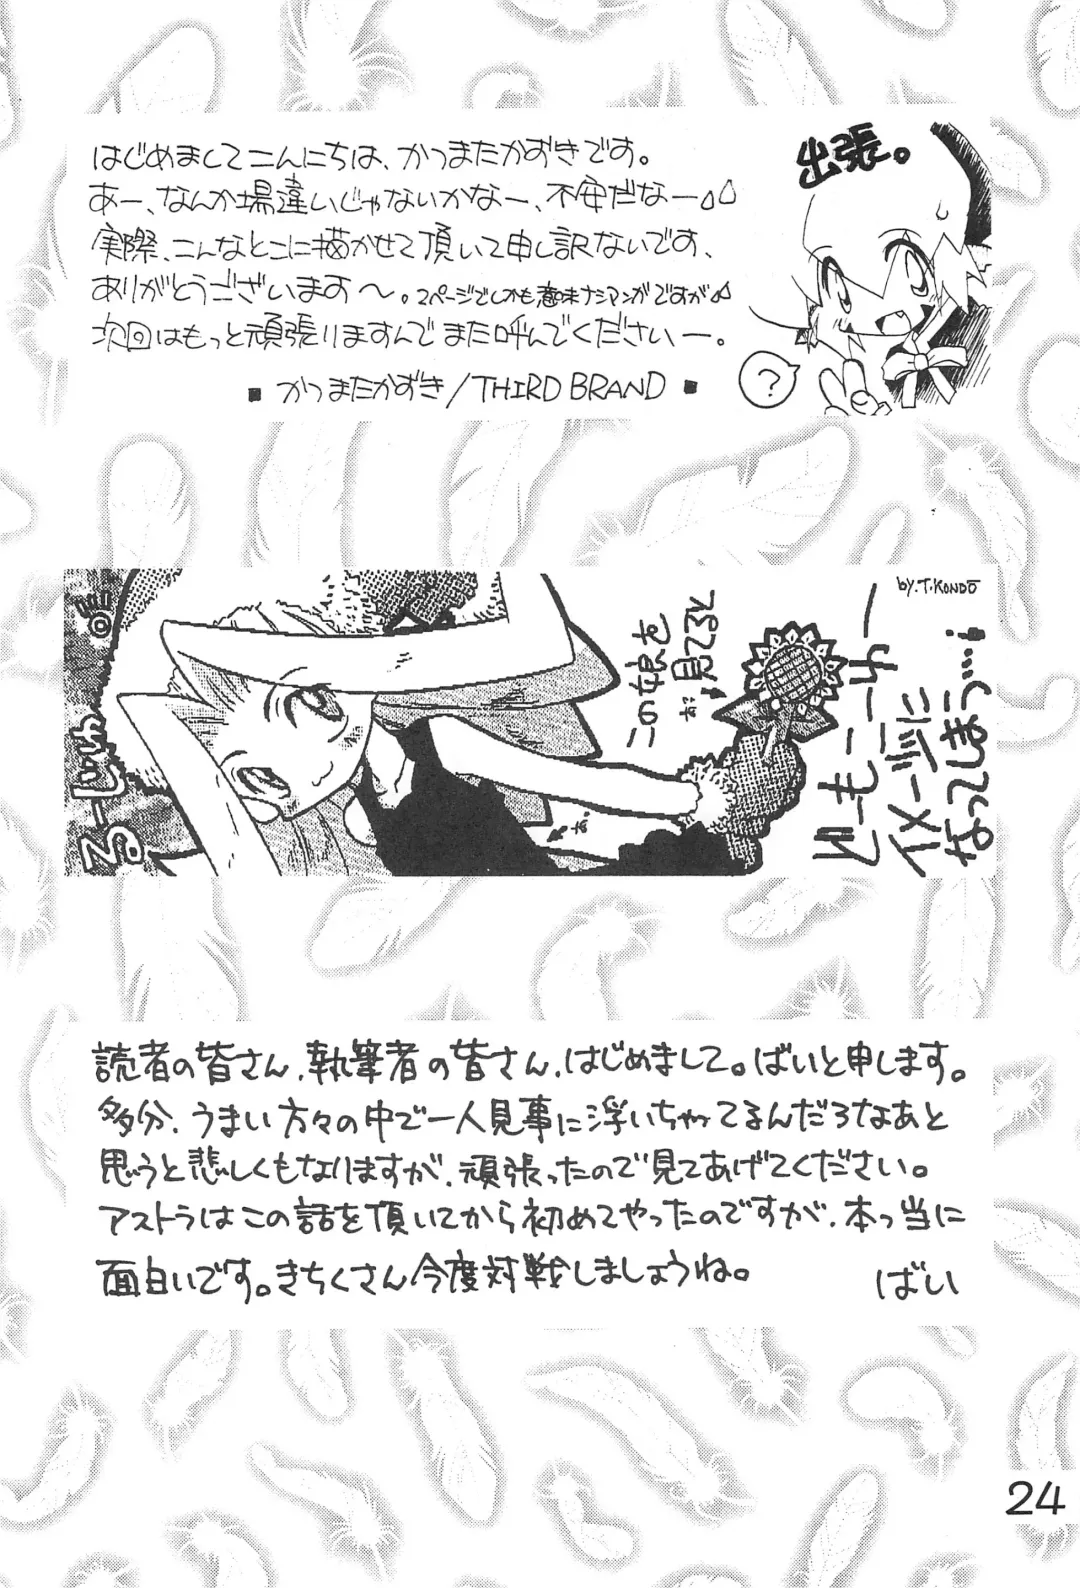 はじめましてこんにちは、かつまたかずきです。
あー、なんか場違いじゃないかなー、不安だなー
実際、こんなとこに描かせて頂いて申し訳ないです、
ありがとうございます〜。2ページでしかも意味ナシマンガですが
次回はもっと頑張りますんでまた呼んでくださいー。
■ かつまたかずき/THIRD BRAND ■
出張。
?
by.T.KONDŌ
この娘を
見てると
どーもーれー
イメージに
なってしまう…!
読者の皆さん、執筆者の皆さん、はじめまして。ばいと申します。
多分、うまい方々の中で一人見事に浮いちゃってるんだろなあと
思うと悲しくもなりますが、頑張ったので見てあげてください。
アストラはこの話を頂いてから初めてやったのですが、本っ当に
面白いです。きちくさん今度対戦しましょうね。
ばい
24